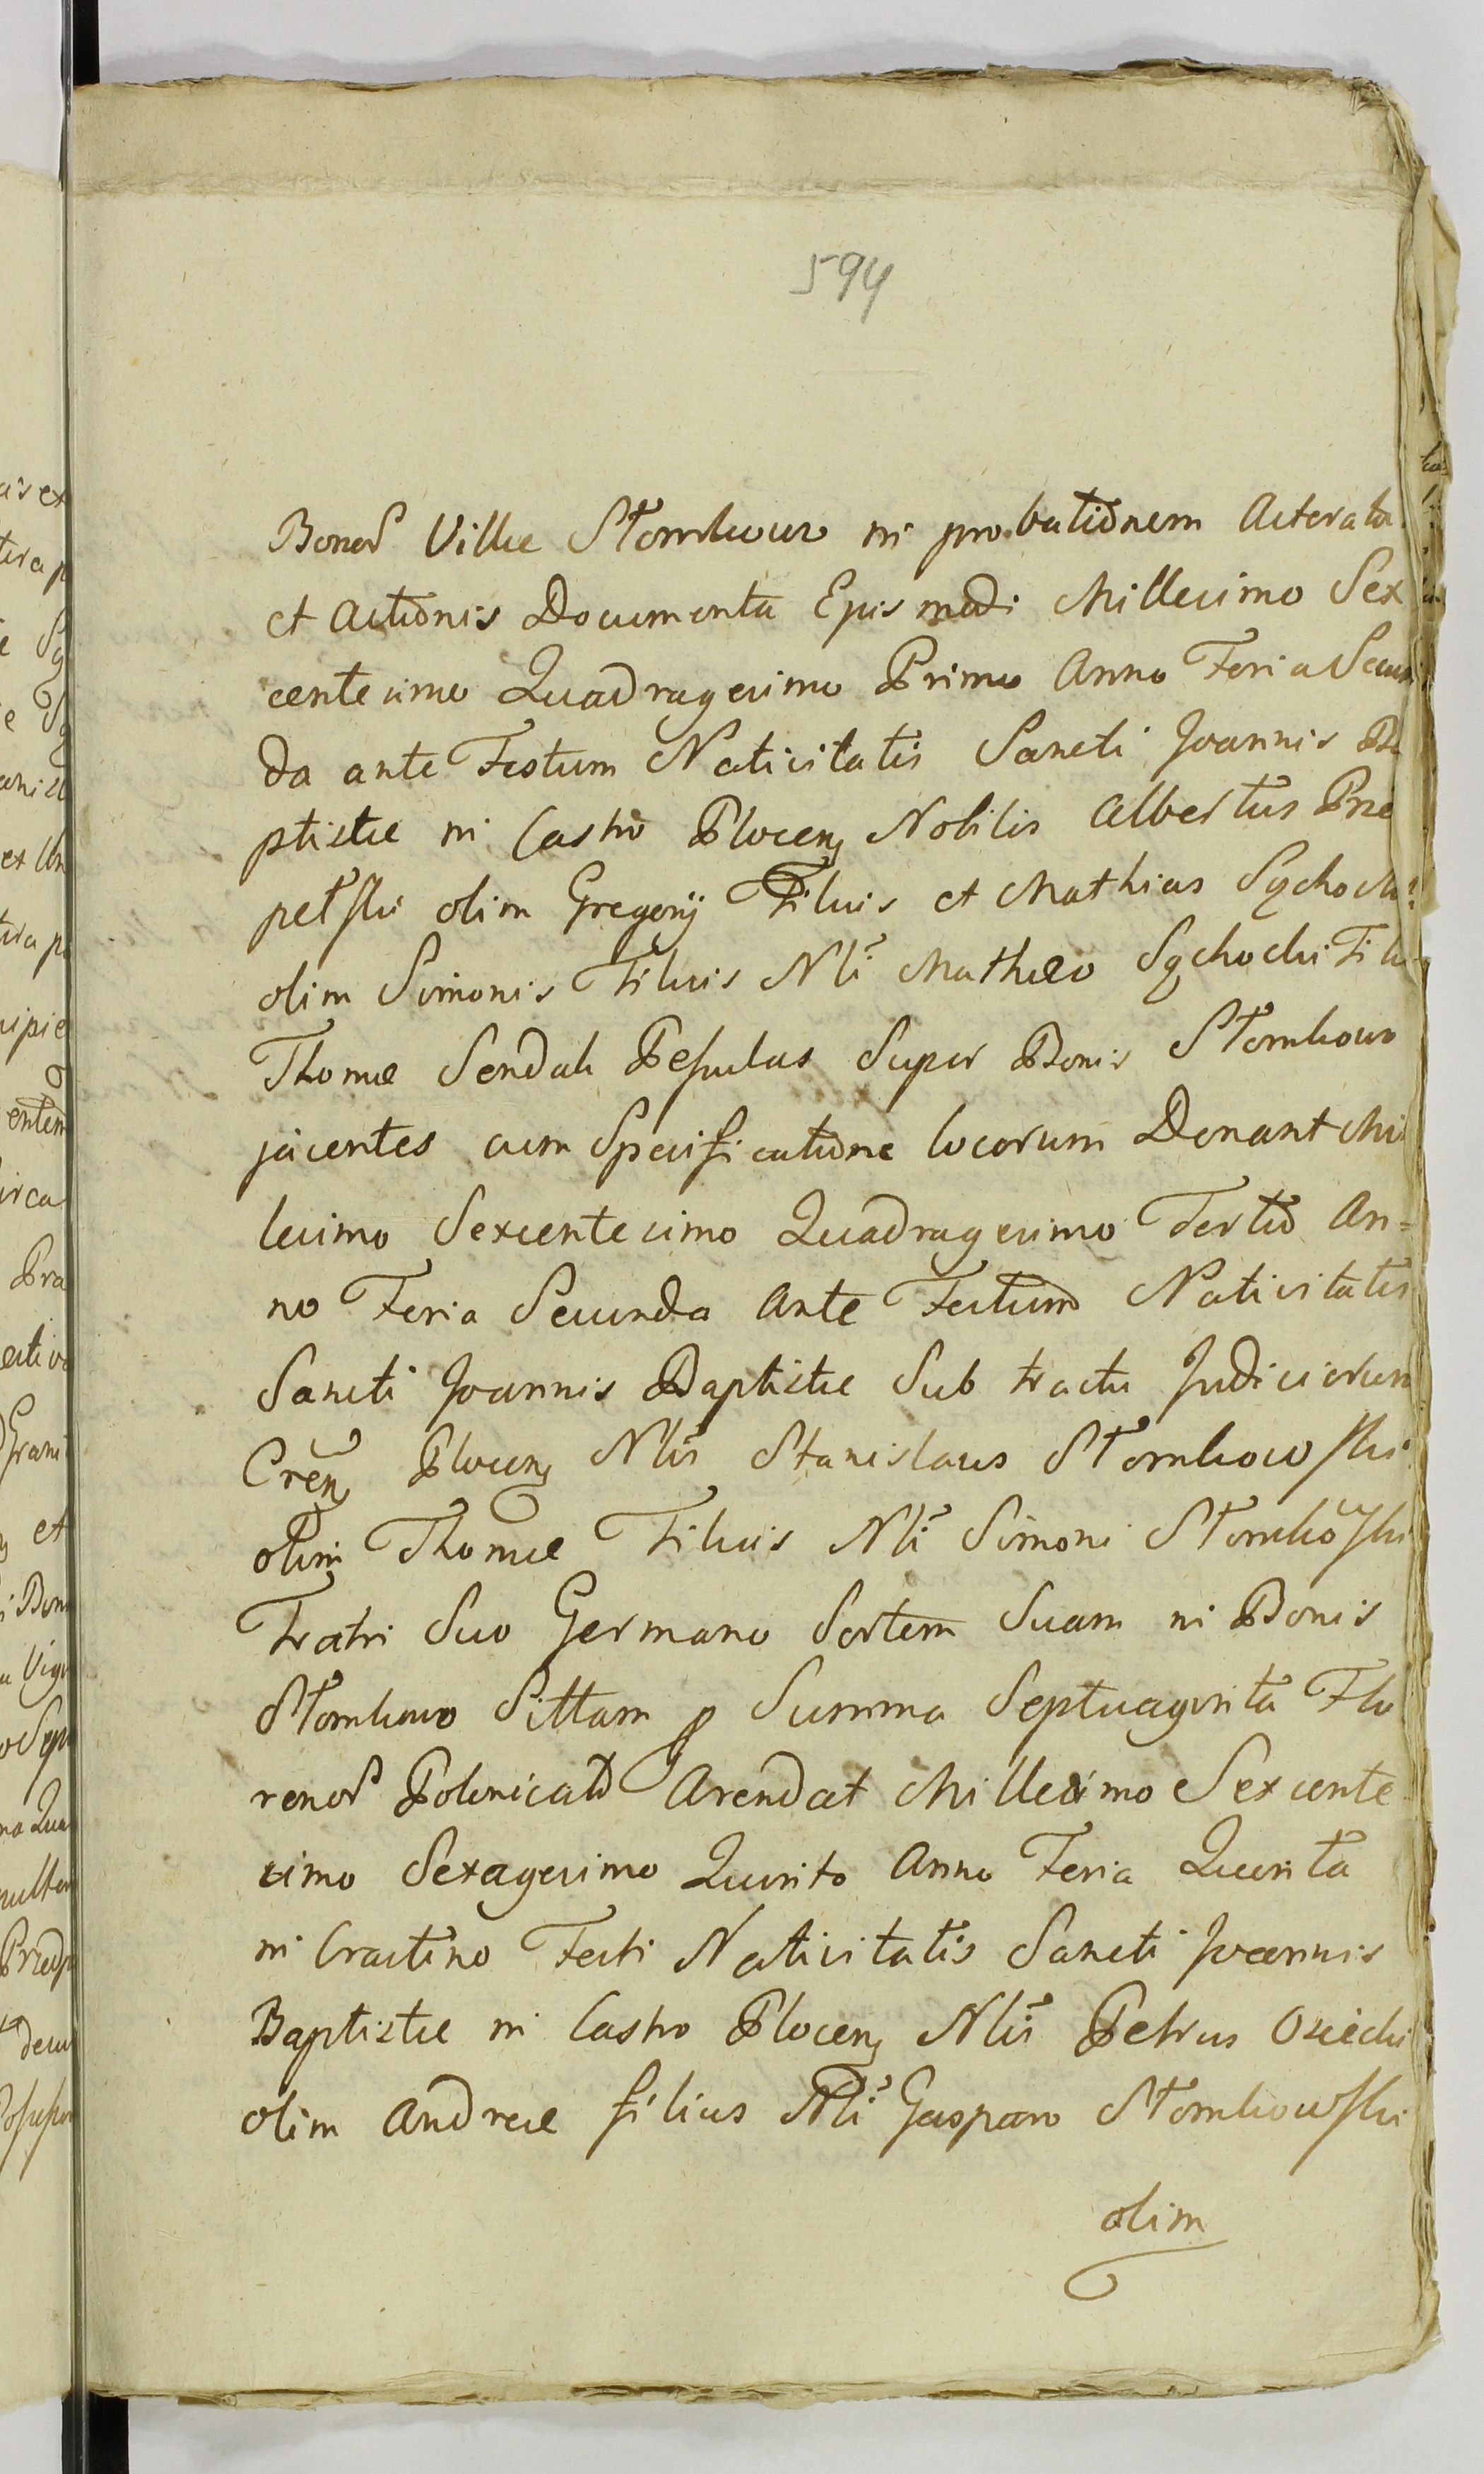 594
Bonor Villæ Słomkowo in probationem Acterata
et Actionis Documenta Ejus modi Millesimo Sex
centesimo Quadragesimo Primo Anno Feria Secun
da ante Festum Nativitatis Sancti Joannis Ba
ptistæ in Castro Plocen Nobilis Albertus Prze
petski olim Gregorij Filius et Mathias Sychocki
olim Simonis Filius Nli Mathæo Sychocki Filio
Thomæ Sendak Pesulas Super Bonis Słomkowo
jacentes cum Specificatione locorum Donant Mil
lesimo Sexcentesimo Quadragesimo Tertio An=
no Feria Secunda Ante Festum Nativitatis
Sancti Joannis Baptistæ Sub tractu Judiciorum
Cren Plocen Nlis Stanislaus Słomkowski
olim Thomæ Filius Nli Simoni Słomkoski
Fratri Suo Germano Sortem Suam in Bonis
Słomkowo Sittam p Summa Septuaginta Flo
renor Polonicał Arendat Millesimo Sexcente
simo Sexagesimo Quinto Anno Feria Quinta
in Crastino Festi Nativitatis Sancti Joannis
Baptistæ in Castro Plocen Nlis Petrus Osiecki
olim Andreæ filius Nli Gasparo Słomkowski
olim